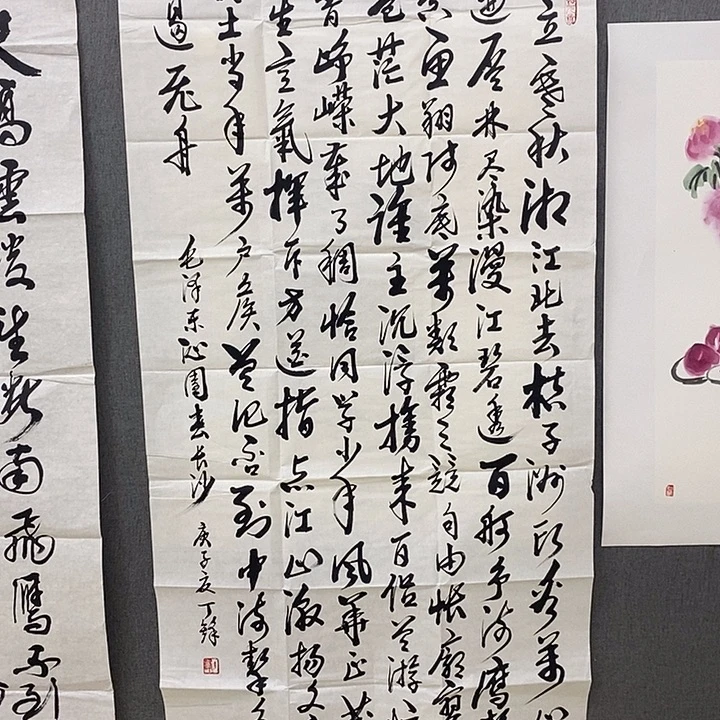 立寒秋湘江北去橘子洲头看萬山
遍层林尽染漫江碧透百舸争流鹰击
空鱼翔浅底萬類霜天競自由怅
苍茫大地誰主沉浮携来百侣曾游忆
峥嵘岁月稠恰同学少年风華正茂
生意氣揮斥方遒指点江山激扬文
土当年萬户侯曾记否到中流擊
遏飞舟
毛泽东沁园春长沙
庚子夏丁锋
天高雲淡望断南飛雁不到